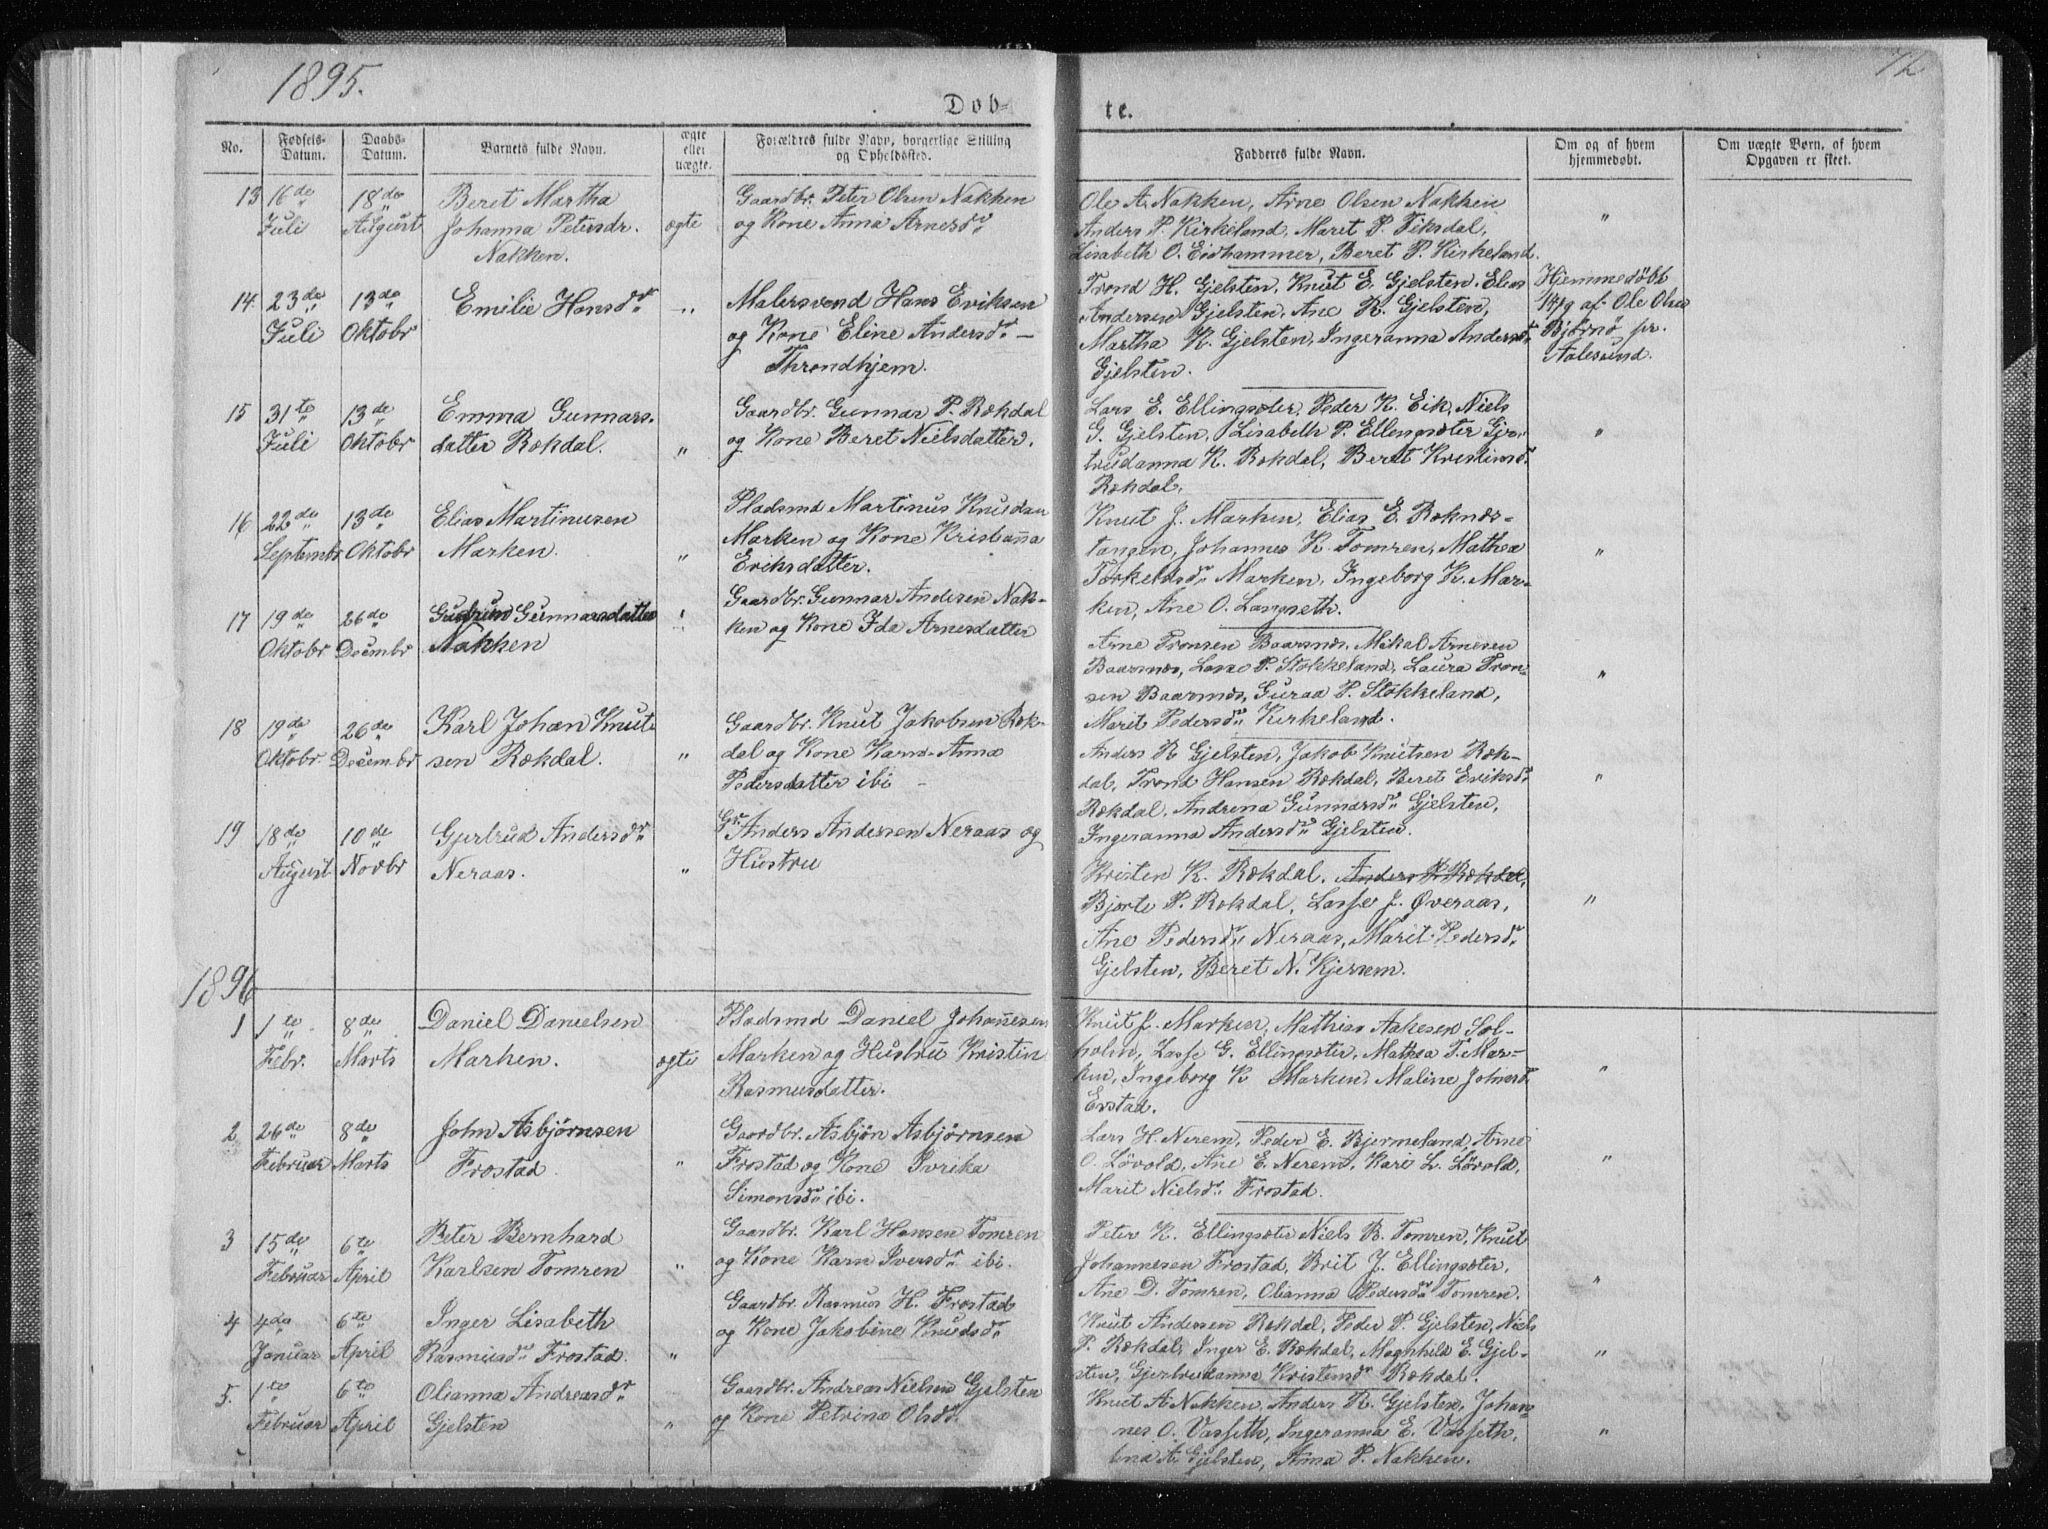 1895.
72
Døb-
te.
No.
Fødsels-
Datum.
Daabs-
Datum.
Barnets fulde Navn.
ægte
eller
uægte.
Forældres fulde Navn, borgerlige Stilling
og Opholdssted.
Fadderes fulde Navn.
Om og af hvem
hjemmedøbt.
Om uægte Børn, af hvem
Opgaven er skeet.
13 16de Juli
18de August
Beret Martha
Johanna Petersdr.
Nakken.
ægte
Gaardbr. Peter Olsen Nakken
og Kone Anna Arnesdr
Ole A. Nakken, Arne Olsen Nakken
Anders P. Kirkeland, Maret P. Fiksdal,
Lisabeth O. Eidhammer, Beret P. Kirkeland.
"
14. 23de Juli
13de Oktobr
Emilie Hansdr
"
Malersvend Hans Eriksen
og Kone Eline Andersdr –
Throndhjem.
Trond H. Gjelsten, Knut E. Gjelsten, Elias
Andersen Gjelsten, Ane R. Gjelsten,
Martha K. Gjelsten, Ingeranna Andersdr
Gjelsten.
Hjemmedöbt
14/9 af Ole Olsen
Björnö pr.
Aalesund.
15 31te Juli
13de Oktobr
Emma Gunnars-
datter Rökdal.
"
Gaardbr. Gunnar P. Rökdal
og Kone Beret Nielsdatter.
Lars E. Ellingsæter, Peder K. Eik, Niels
G. Gjelsten, Lisabeth P. Ellingsæter Gjer-
trudanna K. Rökdal, Beret Kristensdr
Rökdal.
"
16 22de Septembr
13de Oktobr
Elias Martinusen
Marken.
"
Pladsmd Martinus Knudsen
Marken og Kone Kristianna
Eriksdatter.
Knut J. Marken, Elias E. Røknes-
tangen, Johannes K. Tomren, Mathea
Torkelsdr Marken, Ingeborg K. Mar-
ken, Ane O. Langseth.
"
17 19de Oktobr
26de Decembr
Gudrun Gunnarsdatter
Nakken
"
Gaardbr. Gunnar Andersen Nak-
ken og Kone Ida Arnesdatter
Arne Tronsen Baarsnes, Mikal Arnesen
Baarsnes, Lasse P. Stokkeland, Laura Tron-
sen Baarsnes, Guraa P. Stokkeland,
Marit Pedersdr Kirkeland.
"
18 19de Oktobr
26de Decembr
Karl Johan Knut-
sen Rökdal.
"
Gaardbr. Knut Jakobsen Rök-
dal og Kone Karn-Anna
Pedersdatter ibi –
Anders R Gjelsten, Jakob Knutsen Rök-
dal, Trond Hansen Rökdal, Beret Eriksdr
Rökdal, Andrena Gunnarsdr Gjelsten,
Ingeranna Andersdr Gjelsten.
"
19 18de August
10de Novbr
Gjertrud Andersdr
Neraas.
"
Gr. Anders Andersen Neraas og
Hustru
Kristen K. Rökdal, Anders K Rökdal,
Bjørte P. Rökdal, Lasse J. Øveraas,
Ane Pedersdr Neraas, Marit Pedersdr
Gjelsten, Beret N. Kjersem.
"
1896
1 1te Febr.
8de Marts
Daniel Danielsen
Marken.
ægte
Pladsmd Daniel Johannesen
Marken og Hustru Kristin
Rasmusdatter.
Knut J. Marken, Mathias Aakesen Sol-
holm, Lasse G. Ellingsæter, Mathea T. Mar-
ken, Ingeborg K Marken, Maline Johnsdr
Erstad.
"
2 26de Februar
8de Marts
John Asbjörnsen
Frostad
"
Gaardbr. Asbjön Asbjörnsen
Frostad og Kone Ivrika
Simonsdr ibi.
Lars H. Nerem, Peder E. Bjermeland, Arne
O. Lövold, Ane E. Nerem, Kari L. Lövold,
Marit Nielsdr Frostad.
"
3 15de Februar
6te April
Peter Bernhard
Karlsen Tomren
"
Gaardbr. Karl Hansen Tomren
og Kone Karn Iversdr ibi.
Peter K. Ellingsæter Niels B. Tomren, Knut
Johannesen Frostad, Brit J. Ellingsæter,
Ane D. Tomren, Olianna Pedersdr Tomren.
"
4 4de Januar
6te April
Inger Lisabeth
Rasmusdr Frostad.
"
Gaardbr. Rasmus H. Frostad
og Kone Jakobine Knudsdr
Knut Andersen Rökdal, Peder P. Gjelsten, Niels
P. Rökdal, Inger E. Rökdal, Magnhild E. Gjel-
sten, Gjertrudanna Kristensdr Rökdal.
"
5. 1te Februar
6te April
Olianna Andreasdr
Gjelsten
"
Gaardbr. Andreas Nielsen Gjelsten
og Kone Petrina Olsdr.
Knut A Nakken, Anders R. Gjelsten, Johan-
nes O. Vasseth, Ingeranna E. Vasseth,
Lina A. Gjelsten, Anna P. Nakken.
"